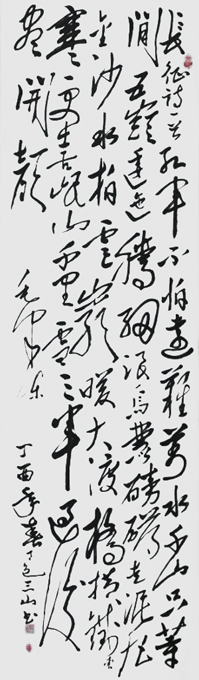 長征詩一首紅軍不怕遠征難萬水千山只等
閒五嶺逶迤騰細浪烏蒙磅礴走泥丸
金沙水拍雲崖暖大渡橋橫鐵索
寒更喜岷山千里雪三軍過後
盡開顏
毛澤東
丁酉年春三山書